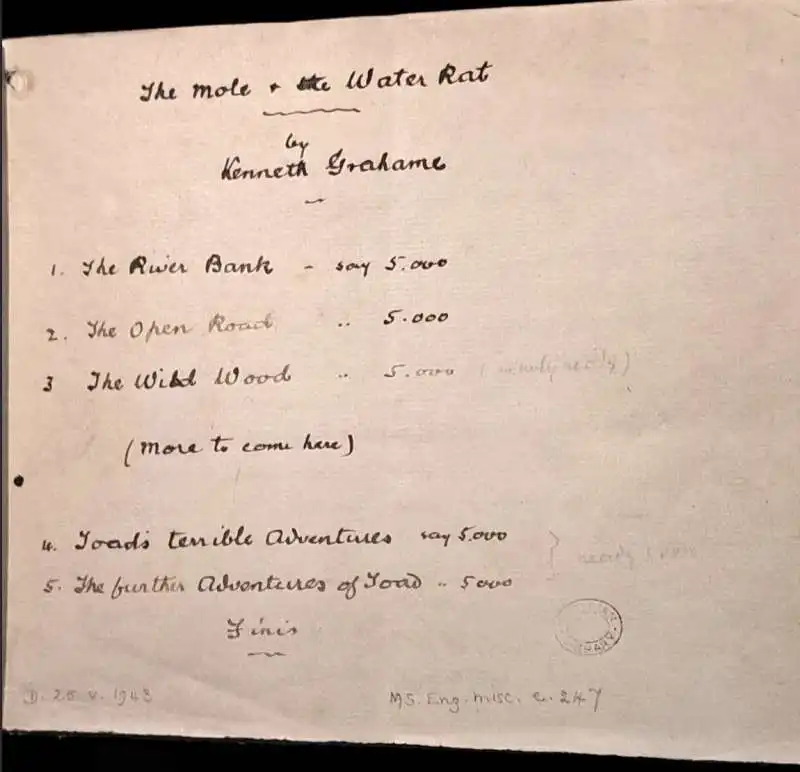 The Mole & the Water Rat
by
Kenneth Grahame
1. The River Bank - say 5.000
2. The Open Road " 5.000
3 The Wild Wood " 5.000 (nearly ready)
(More to come here)
4. Toad's terrible Adventures say 5.000
5. The further Adventures of Toad " 5000
ready
Finis
D. 25. v. 1943
MS. Eng. misc. e. 247